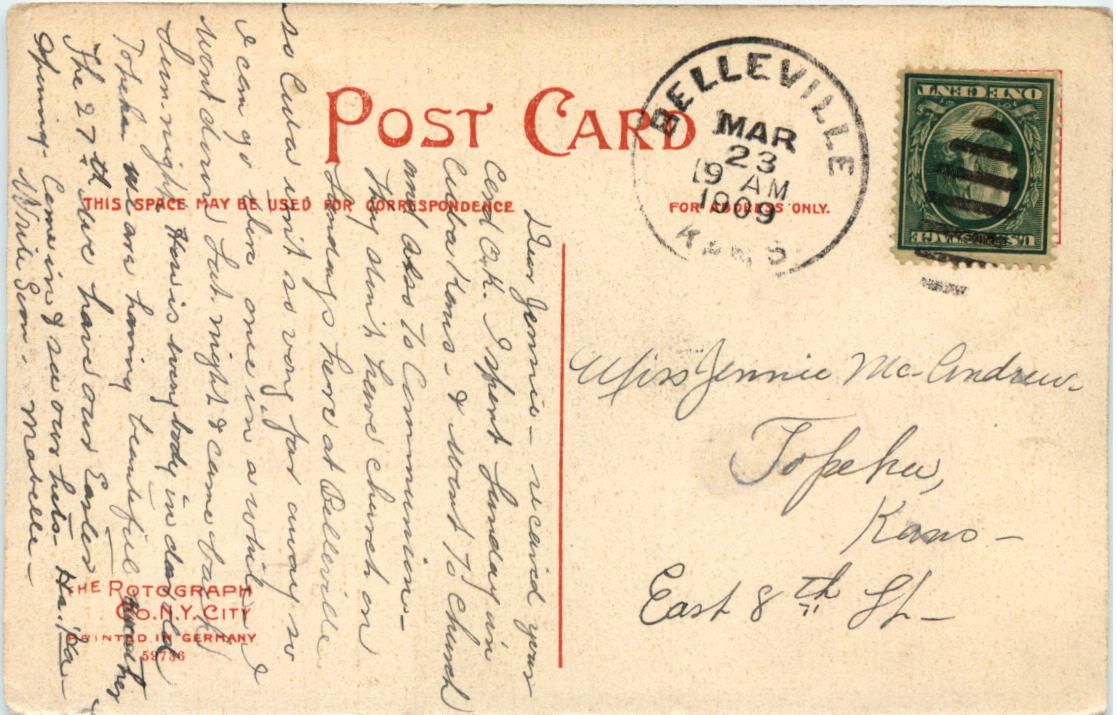 POST CARD
THIS SPACE MAY BE USED FOR CORRESPONDENCE
FOR ADDRESS ONLY.
BELLEVILLE
MAR
23
9 AM
1909
KANS
ONE CENT
U.S. POSTAGE
Miss Jennie McAndrew
Topeka,
Kans -
East 8th St -
Dear Jennie - recevid your
Card O.K. I spent Sunday in
Cuba Kans - & went to Church
and also to Communion -
They don't have church on
Sundays here at Belleville
so Cuba isn't so very far away so
I can go there once in a while - I
went down Sat. night & came back
Sun. night. How is everybody in dear old
Topeka we are having beautiful weather
The 27th we have our Easter
Opening - Come in & see our hats - Ha. Ha -
Write Soon - Mabelle -
THE ROTOGRAPH
CO. N.Y. CITY
PRINTED IN GERMANY
59736